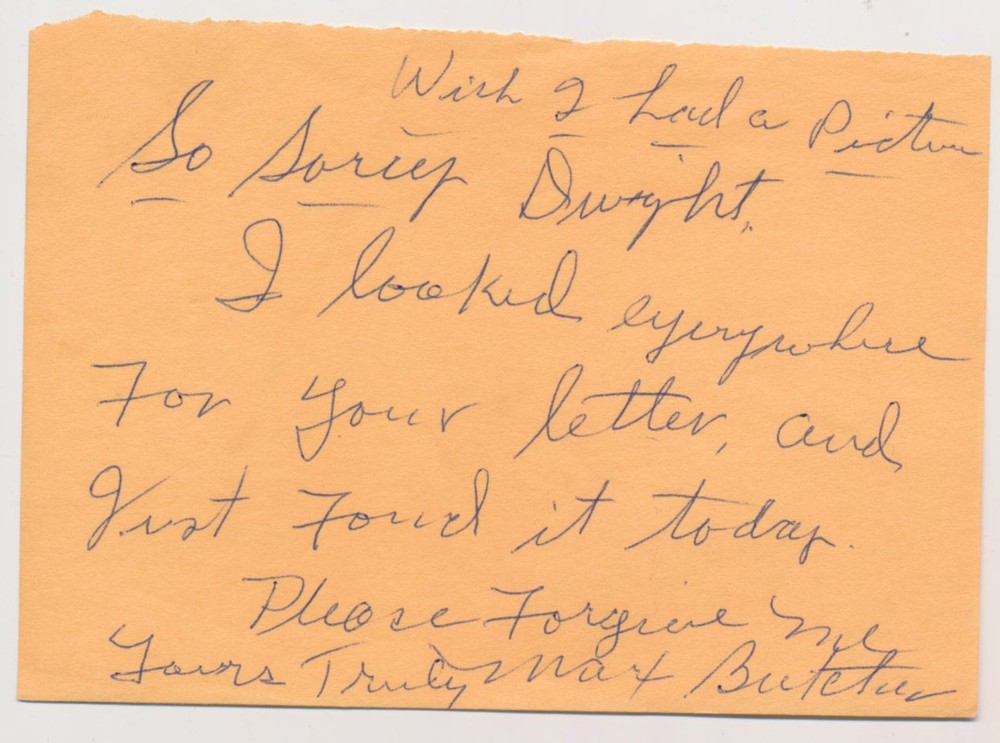 Wish I had a Picture
So Sorry Dwight,
I looked everywhere
For your letter, and
Just Found it today.
Please Forgive me
Yours Truly Max Butcher